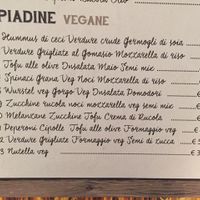 PIADINE VEGANE
Hummus di ceci Verdure crude Germogli di soia
Verdure Grigliate al Gomasio Mozzarella di riso
Tofu alle olive Insalata Maio Semi mix
Spinaci Grana Veg Noci Mozzarella di riso
Wurstel veg Gorgo Veg Insalata Pomodori
Zucchine rucola noci mozzarella veg semi mix
Melanzane Zucchine Tofu Crema di Rucola
Peperoni Cipolle Tofu alle olive Formaggio veg
2 Verdure Grigliate Formaggio veg Semi di zucca
3 Nutella veg